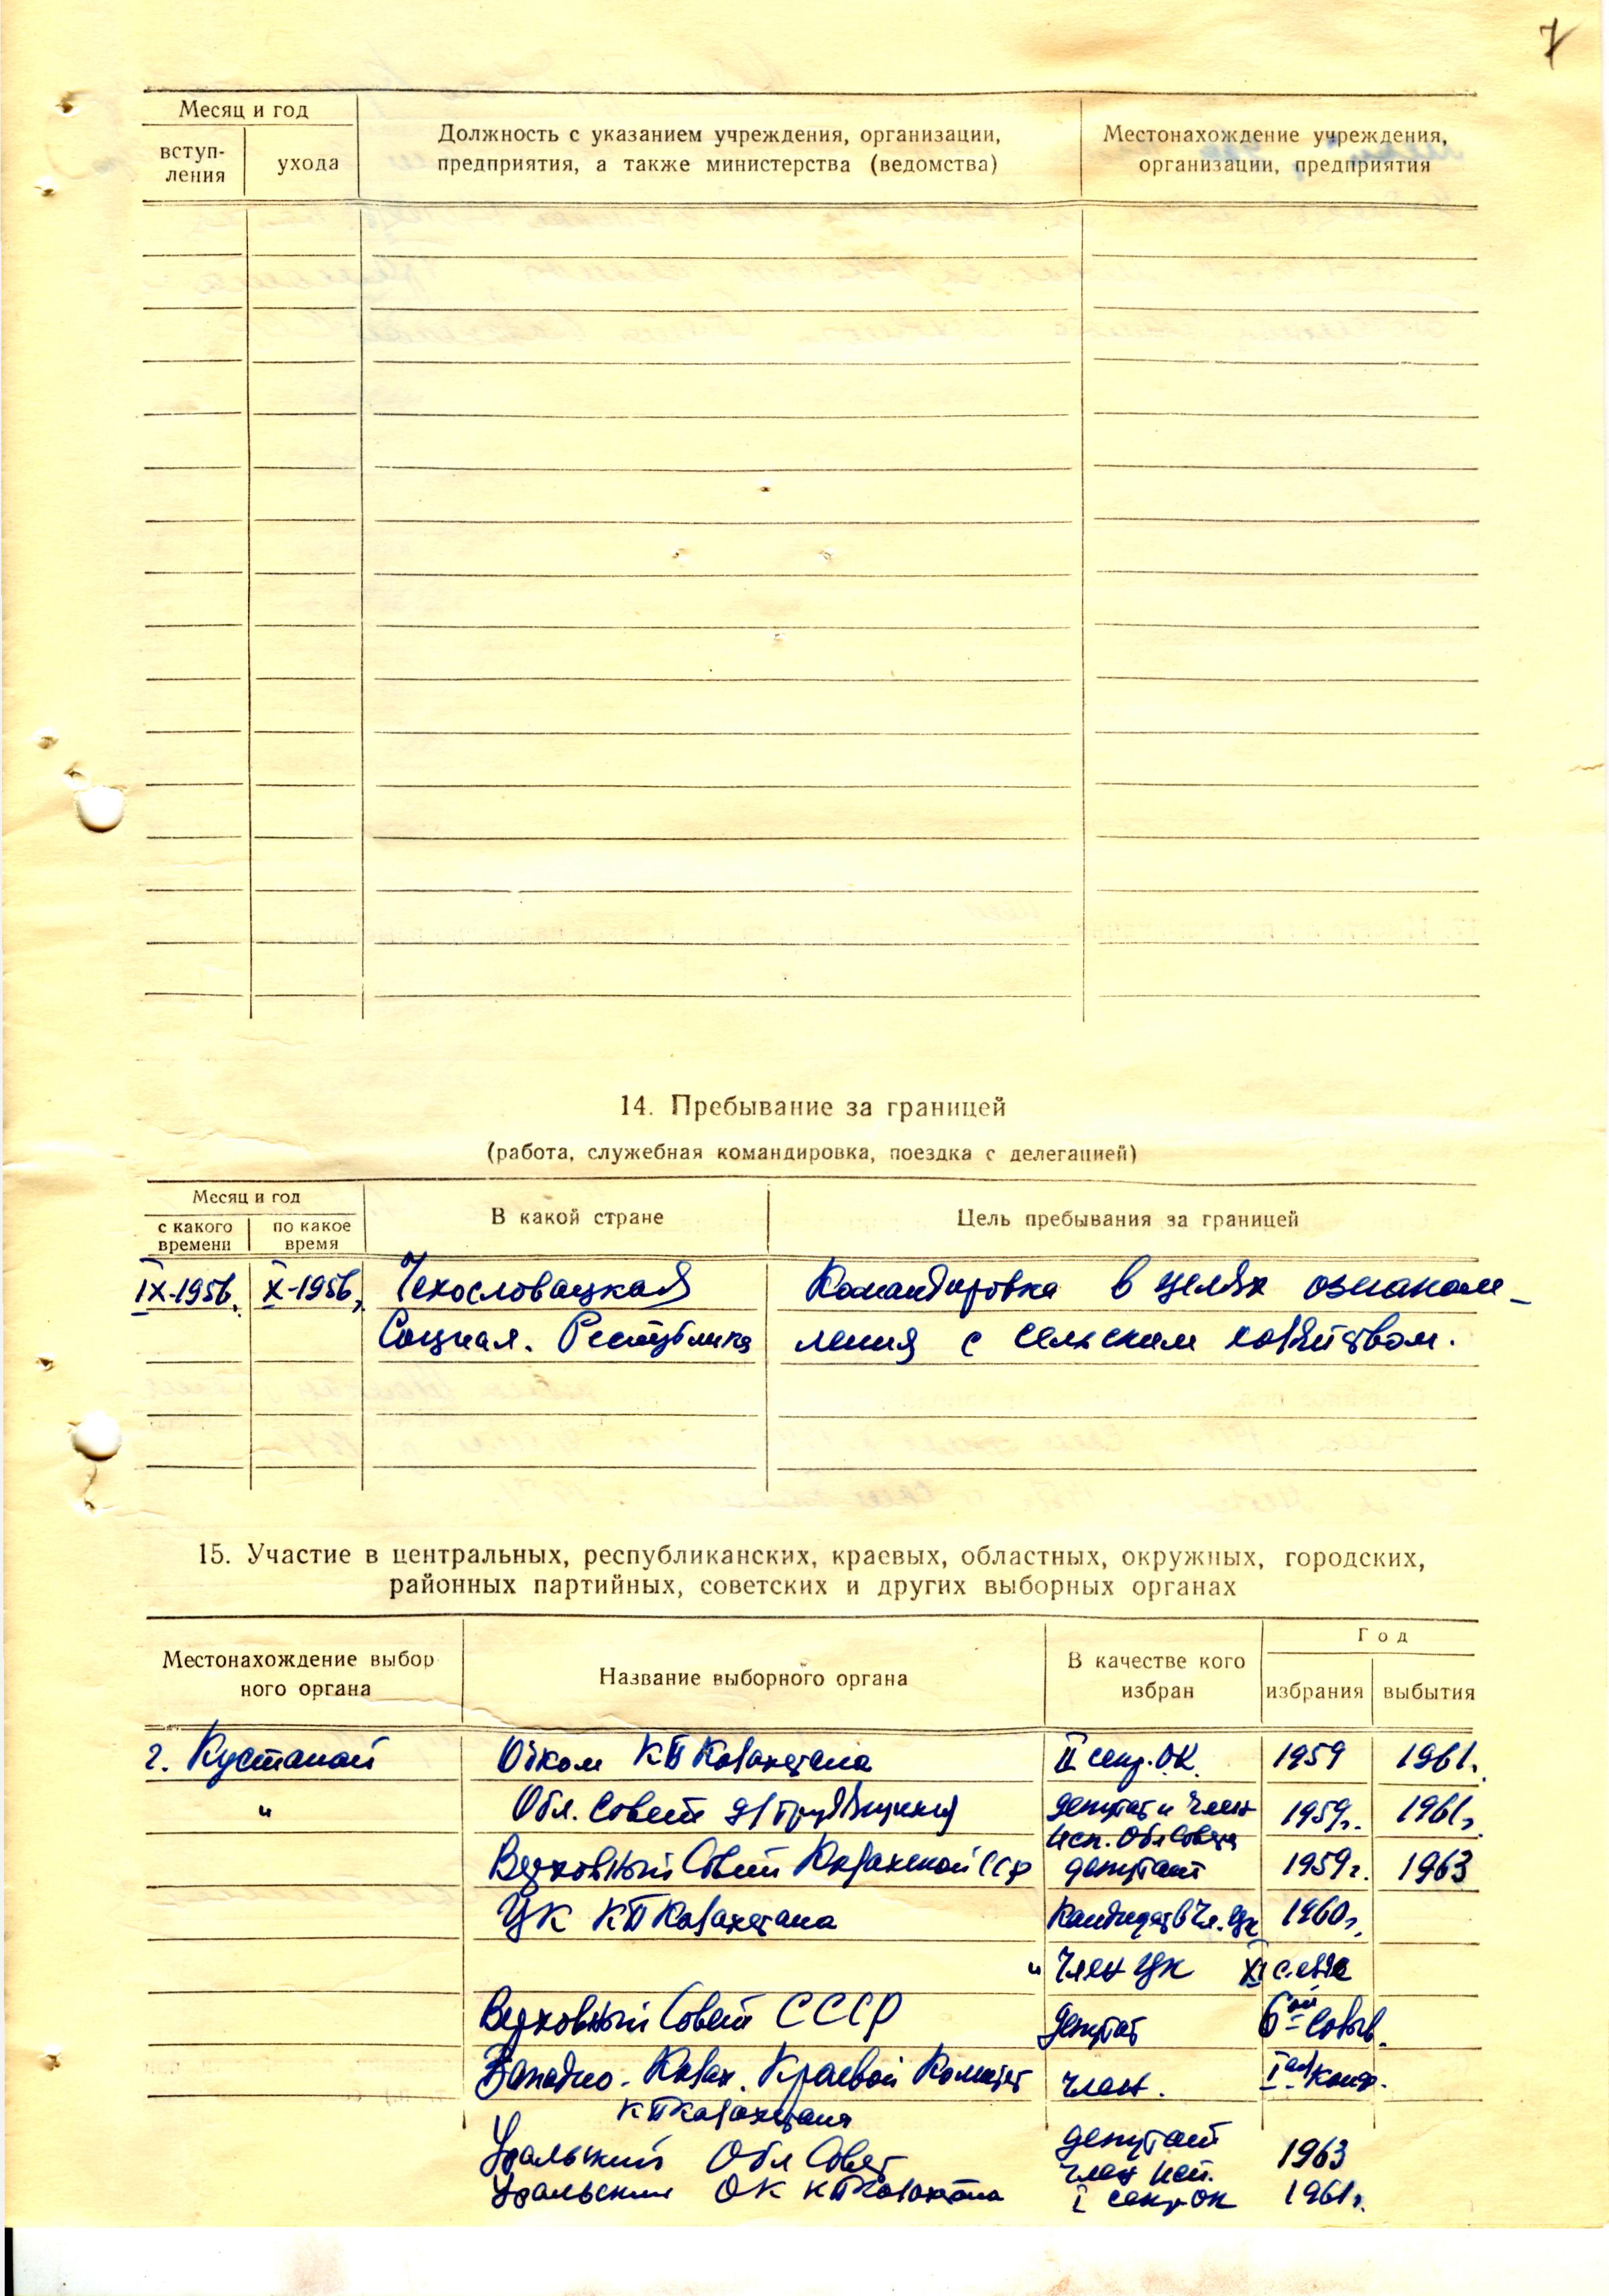 7
Месяц и год
вступ-
ления
ухода
Должность с указанием учреждения, организации,
предприятия, а также министерства (ведомства)
Местонахождение учреждения,
организации, предприятия
14. Пребывание за границей
(работа, служебная командировка, поездка с делегацией)
Месяц и год
с какого
времени
по какое
время
В какой стране
Цель пребывания за границей
IX-1956. X-1956, Чехословацкая Командировка в целях ознаком-
Социал. Республика ления с сельским хозяйством.
15. Участие в центральных, республиканских, краевых, областных, окружных, городских,
районных партийных, советских и других выборных органах
Местонахождение выбор
ного органа
Название выборного органа
В качестве кого
избран
Год
избрания
выбытия
г. Кустанай Обком КП Казахстана II секр. О.К. 1959 1961г.
" Обл. Совет д/трудящихся депутат и член 1959г. 1961г.
исп. Обл Совета
Верховный Совет Казахской ССР депутат 1959г. 1963
ЦК КП Казахстана Кандидат в чл. ЦК 1960г.
" Член ЦК XI съезде
Верховный Совет СССР депутат 6ой созыв.
Западно-Казах. Краевой Комитет член. Iая конф.
КП Казахстана
Уральский Обл Совет депутат 1963
член исп.
Уральский ОК КП Казахстана I секр ОК 1961г.